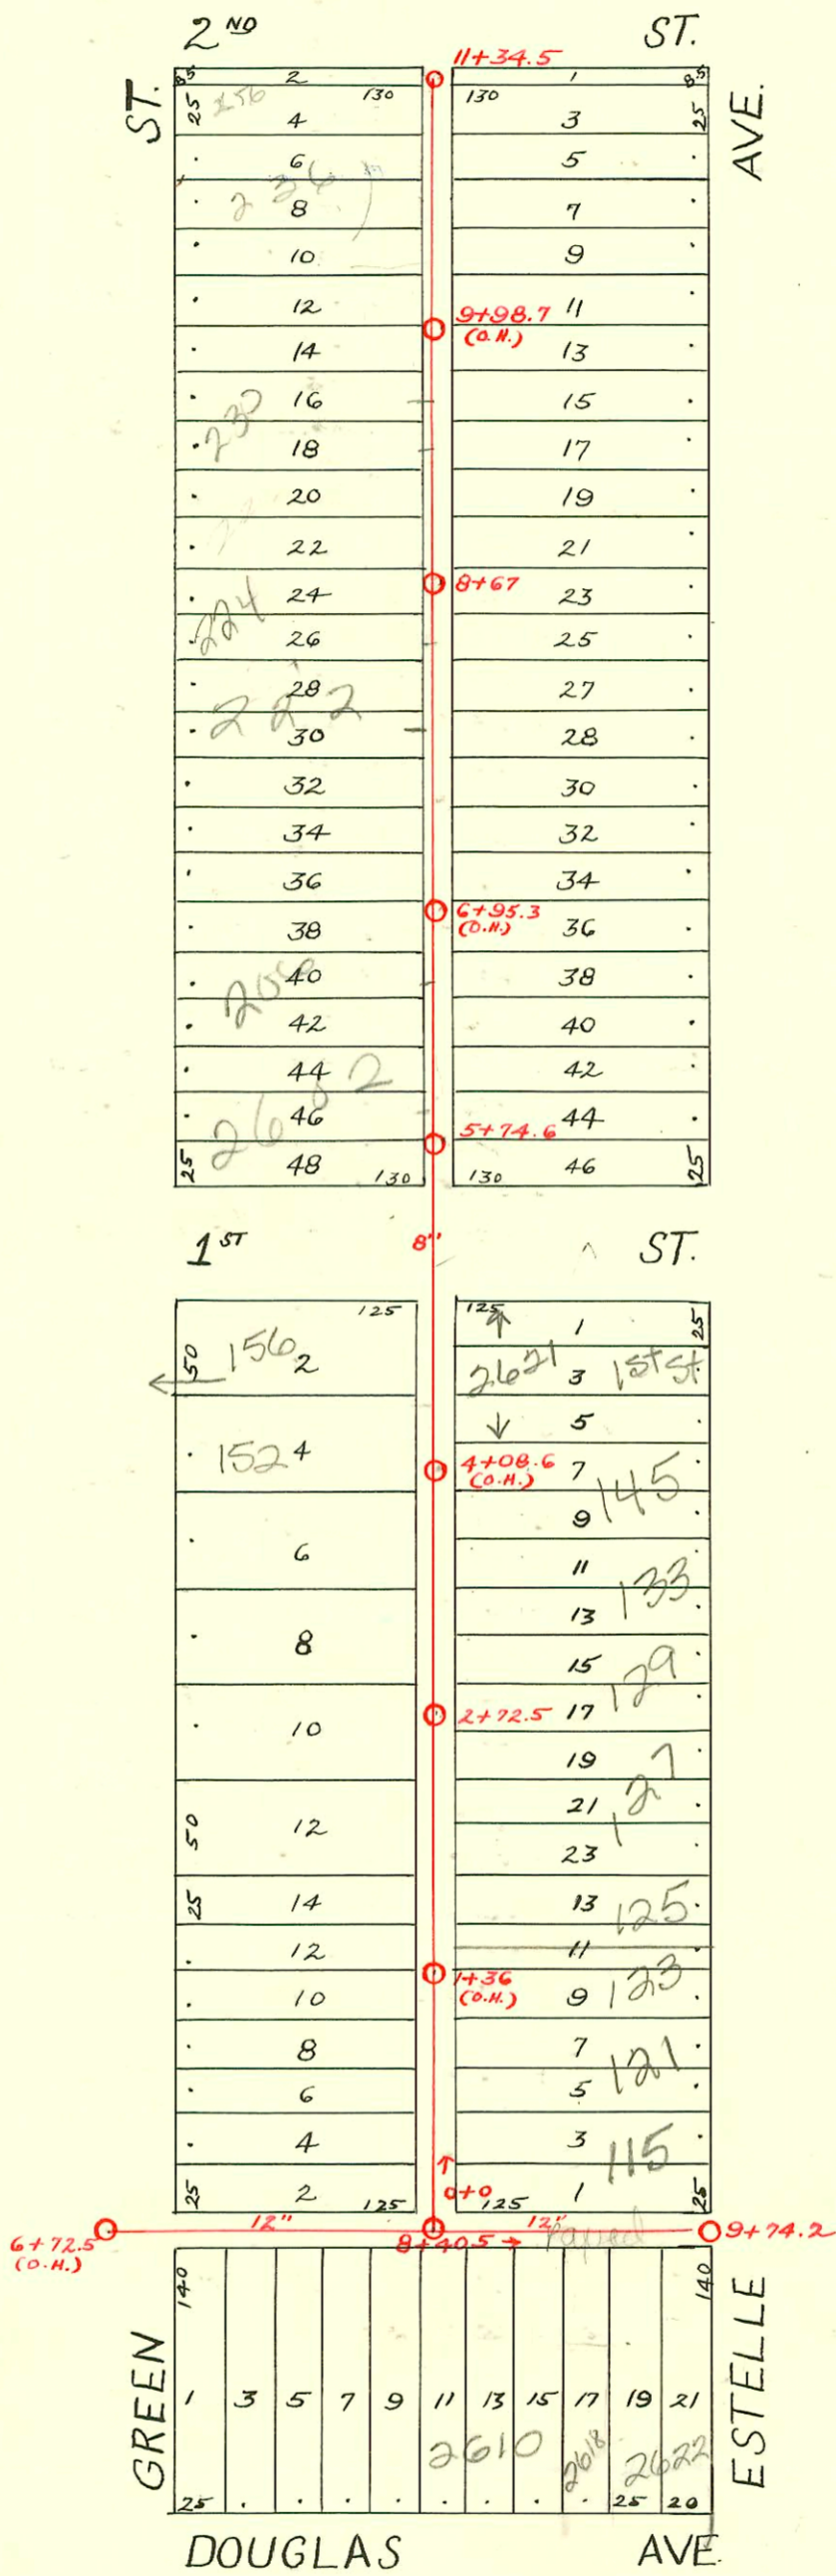 2ND ST.
ST.
AVE.
11+34.5
85 2 1 85
25 156 4 130 130 3 25
6 5
236 8 7
10 9
12 9+98.7 11
(O.H.)
14 13
16 15
230
18 17
20 19
22 21
24 8+67 23
224
26 25
28 27
222
30 28
32 30
34 32
36 34
6+95.3
(O.H.)
38 36
40 38
206
42 40
44 42
46 44
2602
5+74.6
25 48 130 130 46 25
1ST 8" ST.
125 125 1 25
50 156 2 2621 3 1st St
5
152 4 4+08.6 7
(O.H.)
145
9
6 11
133
13
8 15
129
10 2+72.5 17
19
127
21
50 12 23
25 14 13 125
12 11
1+36
(O.H.)
123
10 9
8 7
121
6 5
4 3 115
0+0
25 2 125 125 1 25
6+72.5
(O.H.)
12" 12"
8+40.5 9+74.2
140 140
GREEN
ESTELLE
1 3 5 7 9 11 13 15 17 19 21
2610 2618 2622
25 25 20
DOUGLAS AVE.